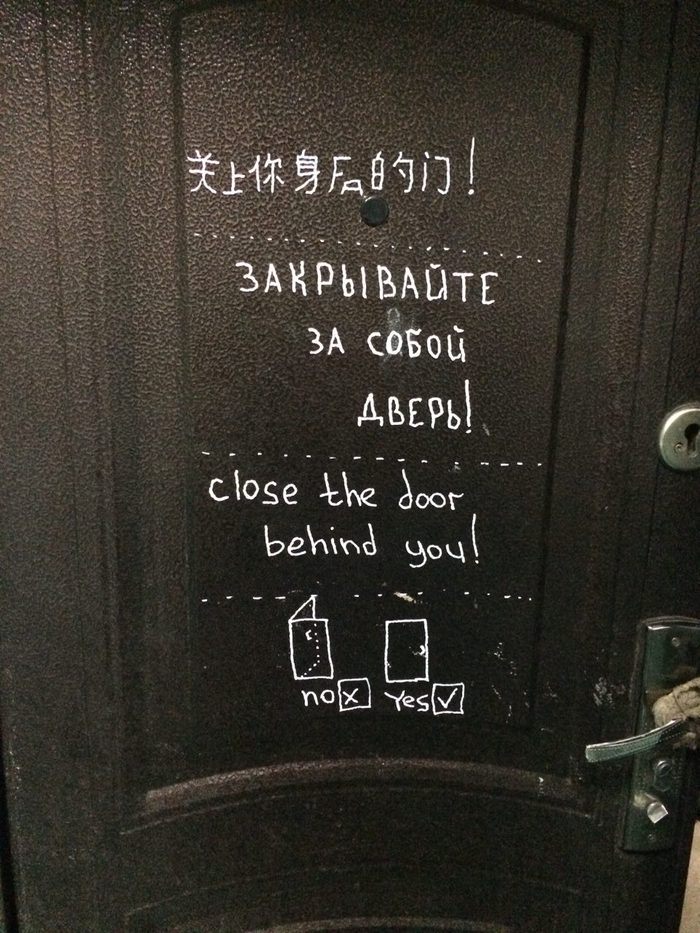 关上你身后的门!
ЗАКРЫВАЙТЕ
ЗА СОБОЙ
ДВЕРЬ!
close the door
behind you!
no x yes ✓